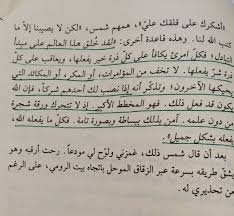 «أشكرك على قلقك عليّ»، همهم شمس، «لكن لا يصيبنا إلا ما
كتب الله لنا. وهذه قاعدة أخرى: «لقد خُلق هذا العالم على مبدأ
التبادل؛ فكل امرئ يكافأ على كل ذرة خير يفعلها، ويعاقب على كل
ذرة شرّ يفعلها. لا تخف من المؤامرات، أو المكر، أو المكائد التي
يحيكها الآخرون؛ وتذكّر أنه إذا نصب لك أحدهم شركاً، فإن الله
يكون قد فعل ذلك. فهو المخطط الأكبر. إذ لا تتحرك ورقة شجرة
من دون علمه. آمن بذلك ببساطة وبصورة تامة. فكل ما يفعله الله
يفعله بشكل جميل»».
بعد أن قال شمس ذلك، غمزني ولوّح لي مودعاً. رحت أرقبه وهو
يشقّ طريقه بسرعة عبر الزقاق الموحل باتجاه بيت الرومي، على الرغم
من تحذيري له.